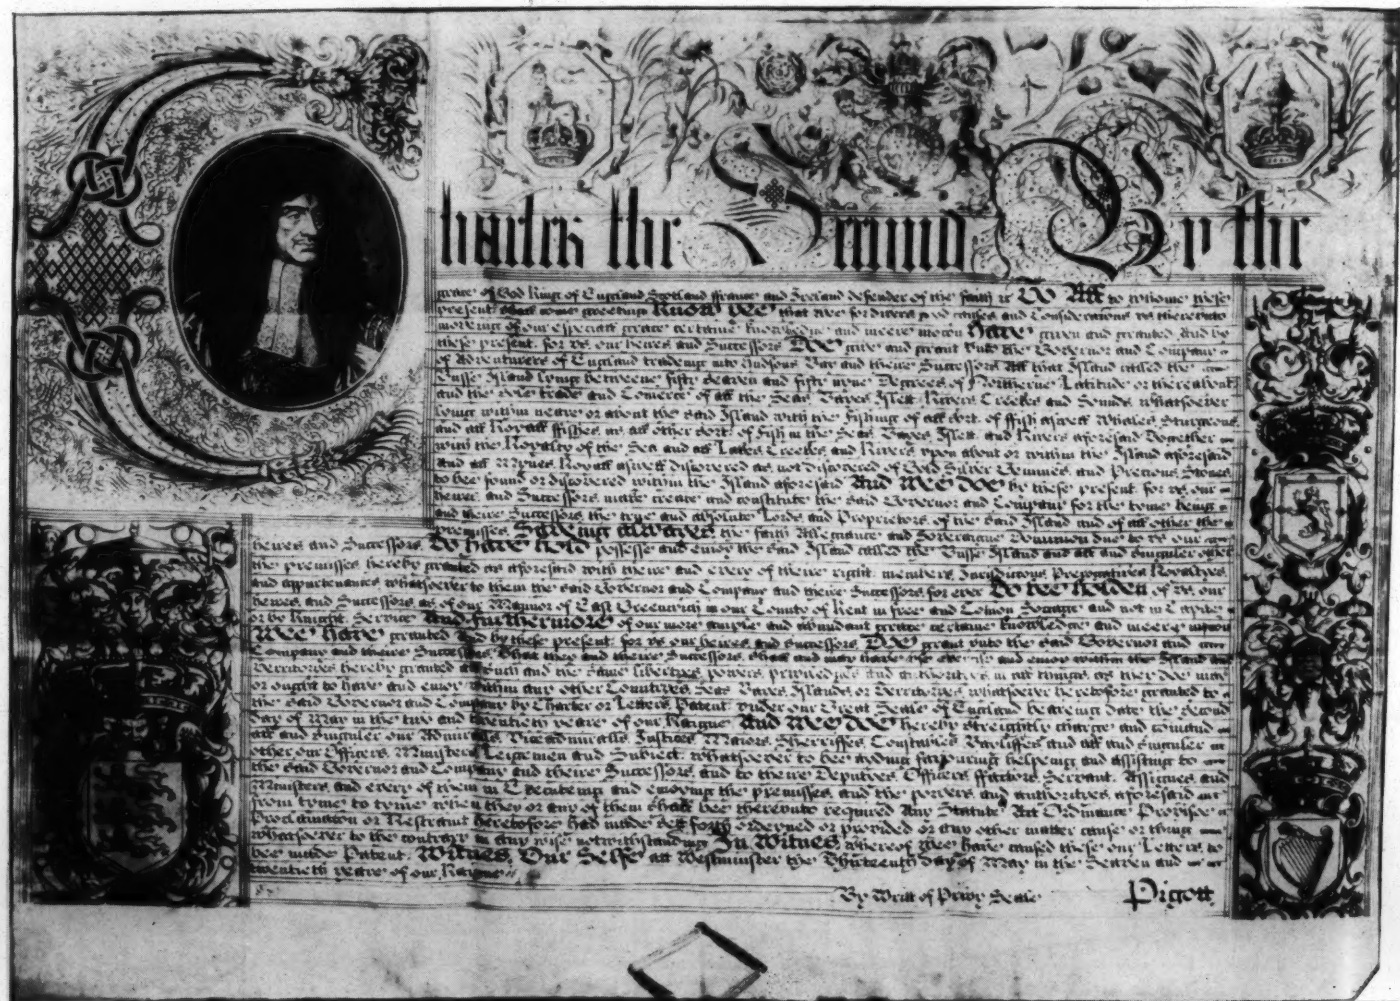 Charles the Second By the
grace of God King of England Scotland ffrance and Ireland defender of the faith &c To All to whome these
present shall come greeting Know Yee that wee for divers good causes and Considerations vs therevnto
moveing of our especiall grace certaine knowledge and meere mocon Have given and granted And by
these present for vs our heires and Successors Doe give and grant vnto the Governor and Company
of Adventurers of England tradeing into Hudsons Bay and theire Successors All that Island called the
Busse Island lying betweene fifty Seaven and fifty nyne Degrees of Northerne Latitude or thereabout
and the sole trade and Comerce of all the Seas Bayes Islett Rivers Creekes and Sounds whatsoever
lying within neare or about the said Island with the Fishing of all sort of ffish aswell Whales Sturgeons
and all Royall ffishes as all other sort of Fish in the Seas Bayes Islett and Rivers aforesaid Together
with the Royalty of the Sea and all Lakes Creekes and Rivers vpon about or within the Island aforesaid
and all Mynes Royall aswell discovered as not discovered of Gold Silver Gemmes and Precious Stones
to bee found or discovered within the Island aforesaid And wee doe by these present for vs our
heires and Successors make create and constitute the said Governor and Company for the tyme being
and theire Successors the true and absolute Lords and Proprietors of the said Island and of all other the
premisses Saveing alwayes the faith Allegiance and Soveraigne Dominion due to vs our
heires and Successors To have hold possesse and enioy the said Island called the Busse Island and all and singuler other
the premisses hereby granted as aforesaid with theire and every of theire right members Jurisdictions Prerogatives Royaltyes
and appurtenances whatsoever to them the said Governor and Company and theire Successors for ever To bee holden of vs our
heires and Successors as of our Mannor of East Greenwich in our County of Kent in free and Comon Soccage and not in Capite
or by Knight Service And furthermore of our more ample and abundant grace certaine knowledge and meere mocon
Wee have granted And by these present for vs our heires and Successors Doe grant vnto the said Governor and
Company and theire Successors That they and theire Successors shall and may have vse exercise and enioy within the Island and
Territories hereby granted all such and the same liberties powers priviledges and authorities in all things as they doe may
or ought to have and enioy within any other Countries Seas Bayes Islands or Territories whatsoever heretofore granted to
the said Governor and Company by Charter or Letters Patent vnder our Great Seale of England beareing date the second
day of May in the two and twentieth yeare of our Raigne And wee doe hereby streightly charge and comand
all and singuler our Admiralls Viceadmiralls Justices Maiors Sherriffes Constables Bayliffes and all and singuler
other our Officers Ministers Leigemen and Subiect whatsoever to bee ayding favouring helping and assisting to
the said Governor and Company and theire Successors and to theire Deputyes Officers ffactors Servant Assignes and
Ministers and every of them in Executeing and enioying the premisses and the powers and authorities aforesaid
from tyme to tyme when they or any of them shall bee therevnto required Any Statute Act Ordinance Proviso
Proclamation or Restraint heretofore had made sett forth ordeyned or provided or any other matter cause or thing
whatsoever to the contrary in any wise notwithstanding In Witnes whereof wee have caused these our Letters to
bee made Patent Witnes Our Selfe att Westminster the Thirteenth day of May in the Seaven and
twentieth yeare of our Raigne
By Writt of Privy Seale
Pigott